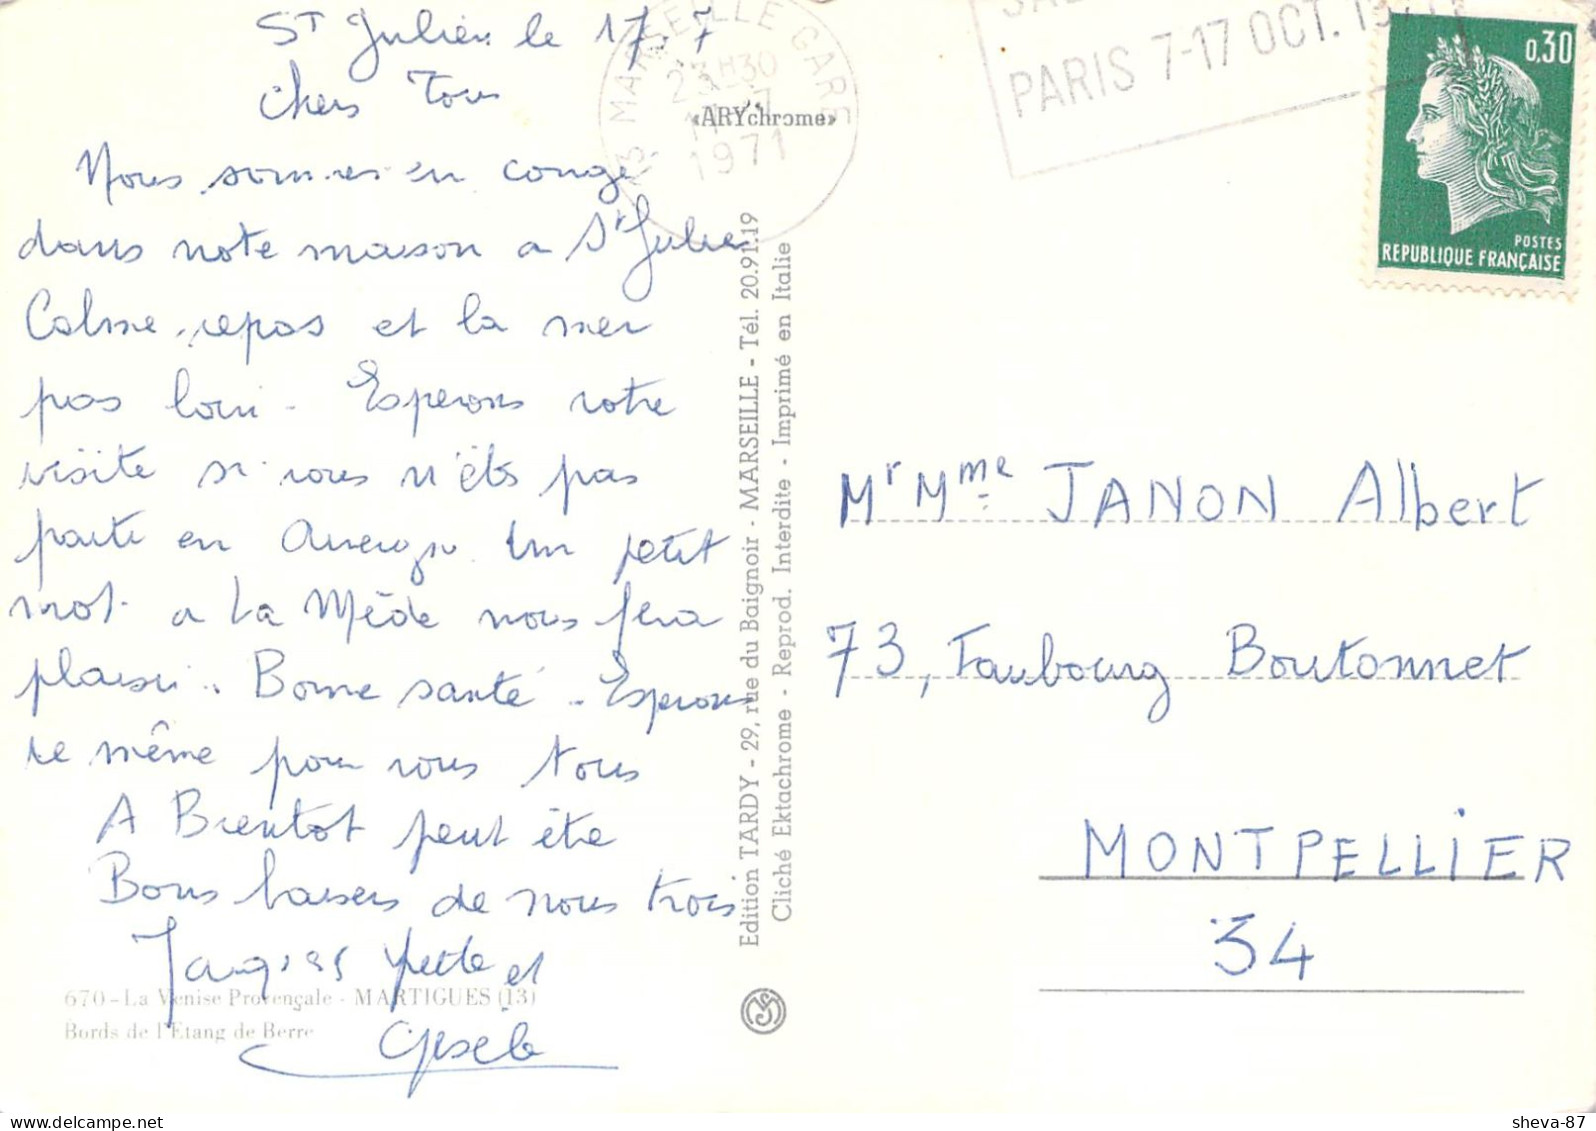 St Julien le 17.7
Chers Tous
Nous sommes en congé
dans notre maison a St Julien
Calme, repos et la mer
pas loin - Esperons votre
visite si vous n'êts pas
parti en Auvergn Un petit
mot a La Mède nous fera
plaisir .. Bonne santé - Esperons
de même pour vous tous
A Bientot peut être
Bons baisers de nous trois
Jacques et
Gisèle
670 - La Venise Provençale - MARTIGUES (13)
Bords de l'Etang de Berre
«ARYchrome»
Edition TARDY - 29, rue du Baignoir - MARSEILLE - Tél. 20.91.19
Cliché Ektachrome - Reprod. Interdite - Imprimé en Italie
13 MARSEILLE GARE
23H30
1971
PARIS 7-17 OCT. 1971
0,30
POSTES
REPUBLIQUE FRANÇAISE
Mr Mme JANON Albert
73, Faubourg Boutonnet
MONTPELLIER
34
sheva-87